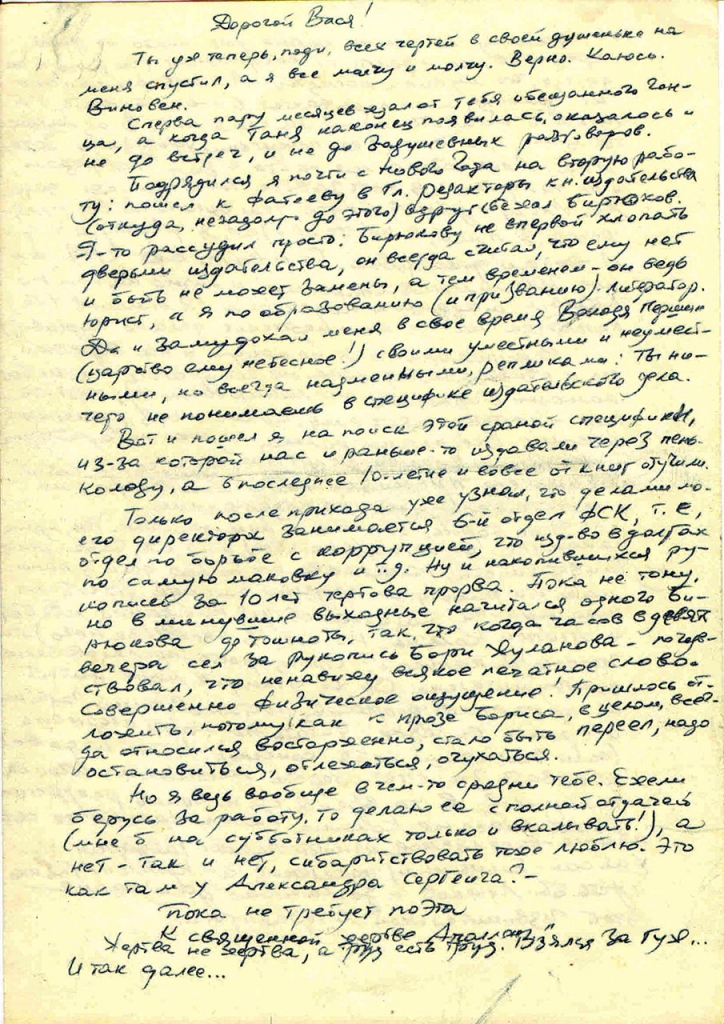 Дорогой Вася!
Ты уж теперь, поди, всех чертей в своей душеньке на
меня спустил, а я все молчу и молчу. Верно. Каюсь.
Виновен.
Сперва пару месяцев ждал от тебя обещанного гон-
ца, а когда Таня наконец появилась, оказалось и
не до встреч, и не до задушевных разговоров.
Подрядился я почти с Нового Года на вторую рабо-
ту: пошел к Фатееву в Гл. редакторы кн. издательства
(откуда, незадолго до этого) вдруг сбежал Бирюков.
Я-то рассудил просто: Бирюкову не впервой хлопать
дверьми издательства, он всегда считал, что ему нет
и быть не может замены, а тем временем – он ведь
юрист, а я по образованию (и призванию) литератор.
Да и замудохал меня в свое время Володя
(царство ему небесное!) своими уместными и неумест-
ными, но всегда надменными, репликами: ты ни-
чего не понимаешь в специфике издательского дела.
Вот и пошел я на поиск этой сраной специфики,
из-за которой нас и раньше-то издавали через пень-
колоду, а в последнее 10-летие и вовсе от книг отучили.
Только после прихода уже узнал, что делами мо-
его директора занимается 6-й отдел ФСК, т.е.
отдел по борьбе с коррупцией, что изд-во в долгах
по самую маковку и т.д. Ну и накопившихся ру-
кописей за 10 лет чертова прорва. Пока не тону,
но в минувшие выходные начитался одного Би-
рюкова до тошноты, так, что когда часов в девять
вечера сел за рукопись Бори Хуланова – почув-
ствовал, что ненавижу всякое печатное слово.
Совершенно физическое ощущение! Пришлось от-
ложить, потому как к прозе Бориса, в целом, все-
да относился восторженно, стало быть переел, надо
остановиться, отлежаться, очухаться.
Но я ведь вообще в чем-то сродни тебе. Ежели
берусь за работу, то делаю ее с полной отдачей
(мне б на субботниках только и вкалывать!), а
нет – так и нет, сибаритствовать тоже люблю. Это
как там у Александра Сергеича? –
Пока не требует поэта
К священной жертве Аполлон,
Жертва не жертва, а груз есть груз. Взялся за гуж...
И так далее...